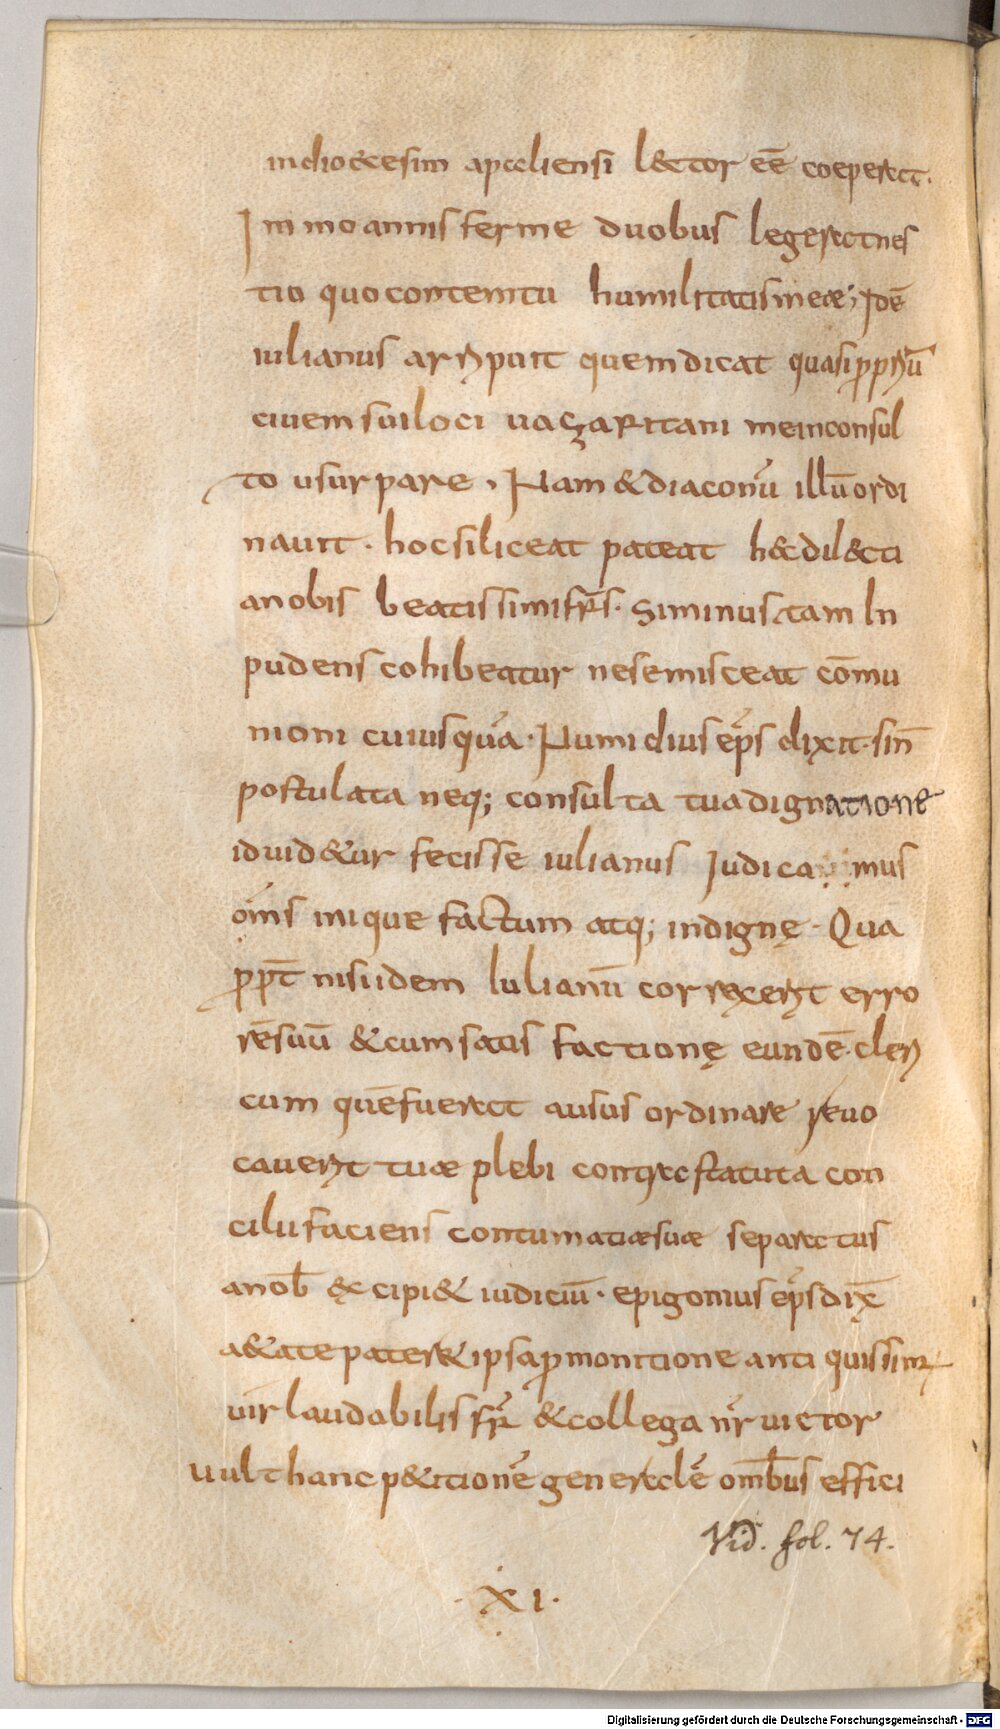 indiocesim apaliensi lector eē coeperat.
Immo annis ferme duobus legerat nes
tio quo contemtu humilitatis meae; Idē
iulianus arripuit quem dicat quasi proprriū
ciuem sui loci uazaritani me inconsul
to usurpare, Nam & diaconū illū ordi
nauit. hoc si liceat pateat h& dil&cti
a nobis beatissimi frs̄. Si minus tam In
pudens cohibeatur ne se misceat cōmu
nioni cuiusquā. Numidius ep̄s dixit. sin̄
postulata neq; consulta tua dignatione
id uid&ur fecisse iulianus Iudicamus
om̄s inique factum atq; indignę. Qua
prop̄t nisi idem Iulianū correxerit erro
rē suū & cum satis factionę eundē. cleri
cum quē fuerat ausus ordinare reuo
cauerit tuae plebi contra statuta con
cilii faciens contumatiae suae separatus
a nob̄ excipi& iudiciū. epigonius ep̄s dix̄
a&ate pater & ipsa promontione antiquissim;
uir laudabilis fr̄ & collega nr̄ uictor
uult hanc p&itionē generalē omb̄us effici
Vid. fol. 74.
·XI·
Digitalisierung gefördert durch die Deutsche Forschungsgemeinschaft - DFG